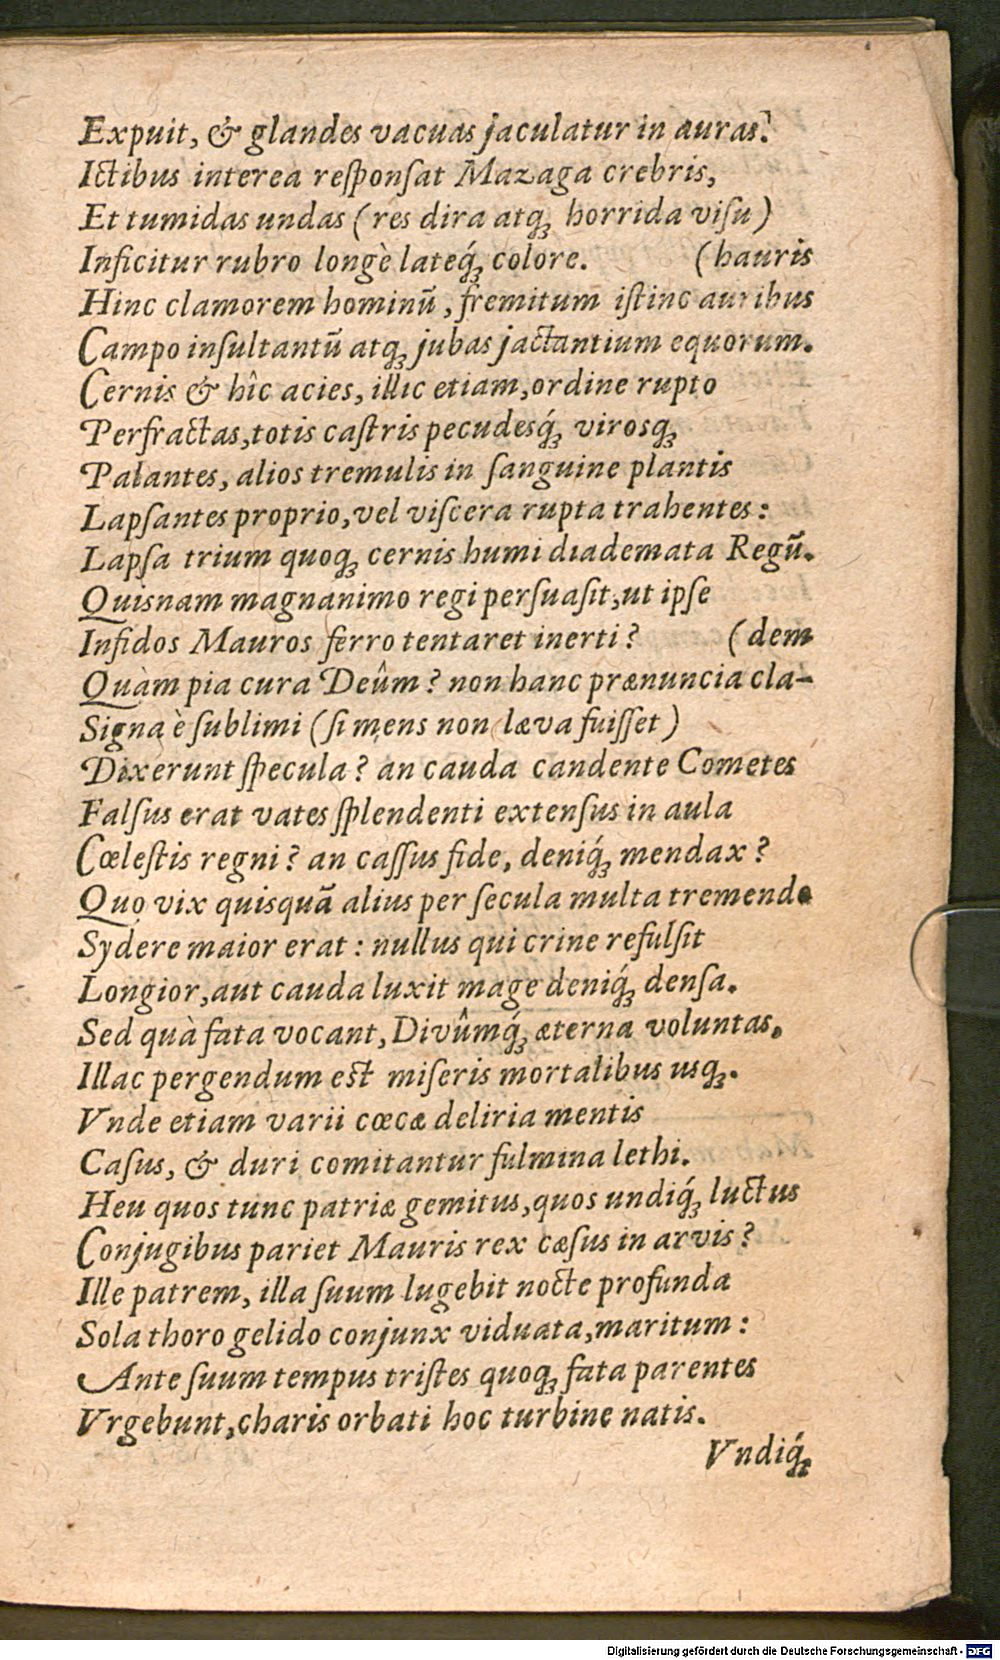 Expuit, & glandes vacuas jaculatur in auras.
Ictibus interea reſponſat Mazaga crebris,
Et tumidas undas (res dira atqꝫ horrida viſu)
Inficitur rubro longè lateq́ꝫ colore. (hauris
Hinc clamorem hominũ, fremitum iſtinc auribus
Campo inſultantũ atqꝫ jubas jactantium equorum.
Cernis & hîc acies, illic etiam, ordine rupto
Perfractas, totis caſtris pecudesq́ꝫ virosqꝫ
Palantes, alios tremulis in ſanguine plantis
Lapſantes proprio, vel viſcera rupta trahentes:
Lapſa trium quoqꝫ cernis humi diademata Regũ.
Quisnam magnanimo regi perſuaſit, ut ipſe
Infidos Mauros ferro tentaret inerti? (dem
Quàm pia cura Deûm? non hanc prænuncia cla-
Signa è ſublimi (ſi mens non læva fuiſſet)
Dixerunt ſpecula? an cauda candente Cometes
Falſus erat vates ſplendenti extenſus in aula
Cœleſtis regni? an caſſus fide, deniq́ꝫ mendax?
Quo vix quisquã alius per ſecula multa tremendo
Sydere maior erat: nullus qui crine refulſit
Longior, aut cauda luxit mage deniq́ꝫ denſa.
Sed quà fata vocant, Divûmq́ꝫ æterna voluntas,
Illac pergendum est miſeris mortalibus usqꝫ.
Vnde etiam varii cœcæ deliria mentis
Caſus, & duri comitantur fulmina lethi.
Heu quos tunc patriæ gemitus, quos undiq́ꝫ luctus
Conjugibus pariet Mauris rex cæſus in arvis?
Ille patrem, illa ſuum lugebit nocte profunda
Sola thoro gelido conjunx viduata, maritum:
Ante ſuum tempus triſtes quoqꝫ fata parentes
Vrgebunt, charis orbati hoc turbine natis.
Vndiq́ꝫ
Digitalisierung gefördert durch die Deutsche Forschungsgemeinschaft - DFG